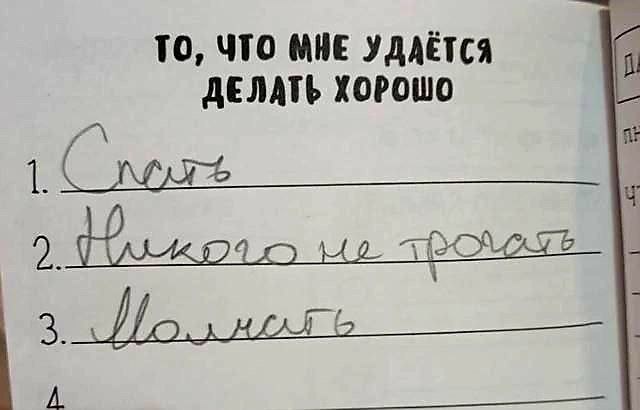 ТО, ЧТО МНЕ УДАЁТСЯ
ДЕЛАТЬ ХОРОШО
1. Спать
2. Никого не трогать
3. Молчать
4